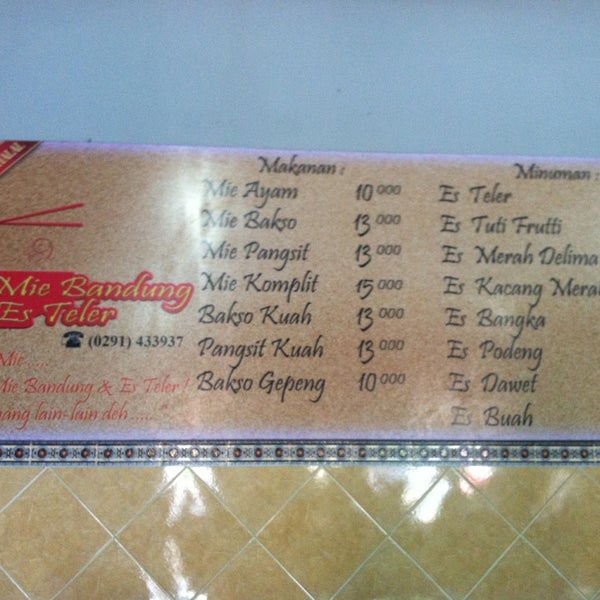 Mie Bandung
Es Teler
☎ (0291) 433937
Mie.....
Mie Bandung & Es Teler !
yang lain-lain deh....."
Makanan :
Mie Ayam 10 000
Mie Bakso 13 000
Mie Pangsit 13 000
Mie Komplit 15 000
Bakso Kuah 13 000
Pangsit Kuah 13 000
Bakso Gepeng 10 000
Minuman :
Es Teler
Es Tuti Frutti
Es Merah Delima
Es Kacang Merah
Es Bangka
Es Podeng
Es Dawet
Es Buah